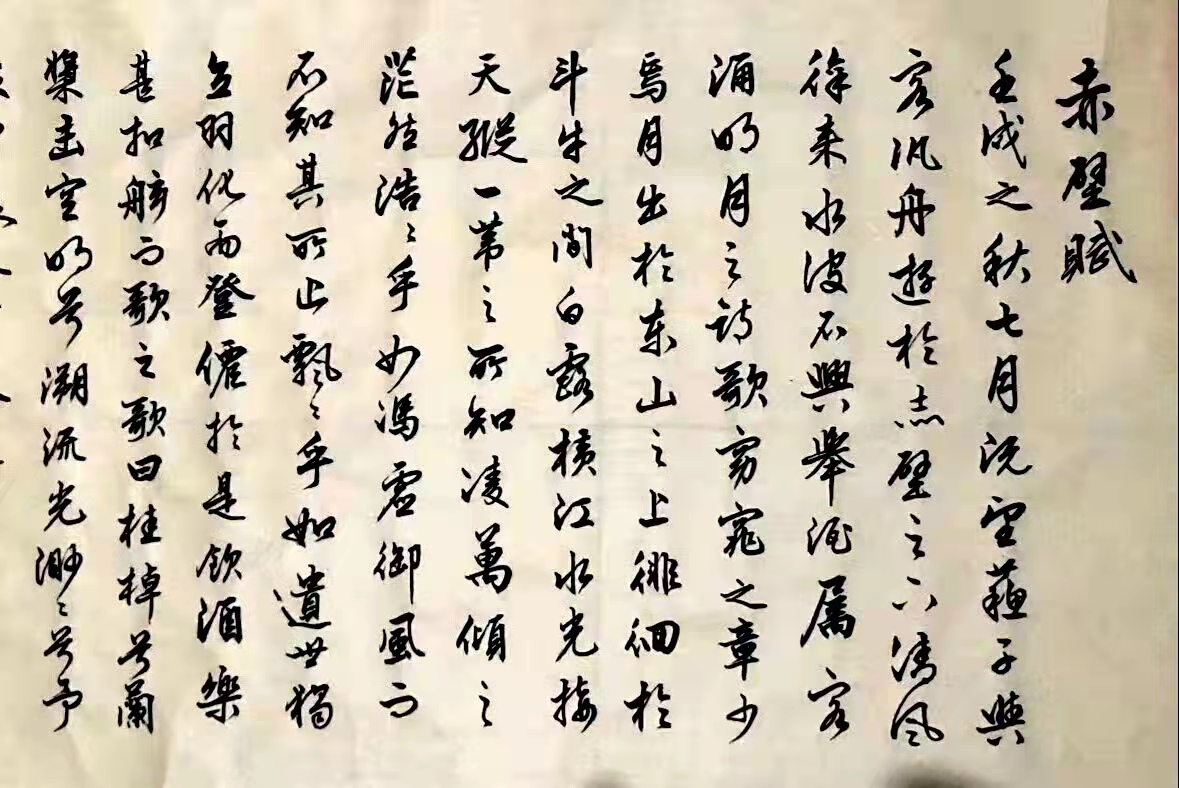 赤壁賦
壬戌之秋七月既望蘇子與
客汎舟遊於赤壁之下清風
徐来水波不興舉酒屬客
誦明月之詩歌窈窕之章少
焉月出於东山之上徘徊於
斗牛之間白露横江水光接
天縱一苇之所知凌萬傾之
茫然浩〻乎如馮虛御風而
不知其所止飄〻乎如遺世獨
立羽化而登僊於是飲酒樂
甚扣舷而歌之歌曰桂棹兮蘭
槳击空明兮溯流光渺〻兮予